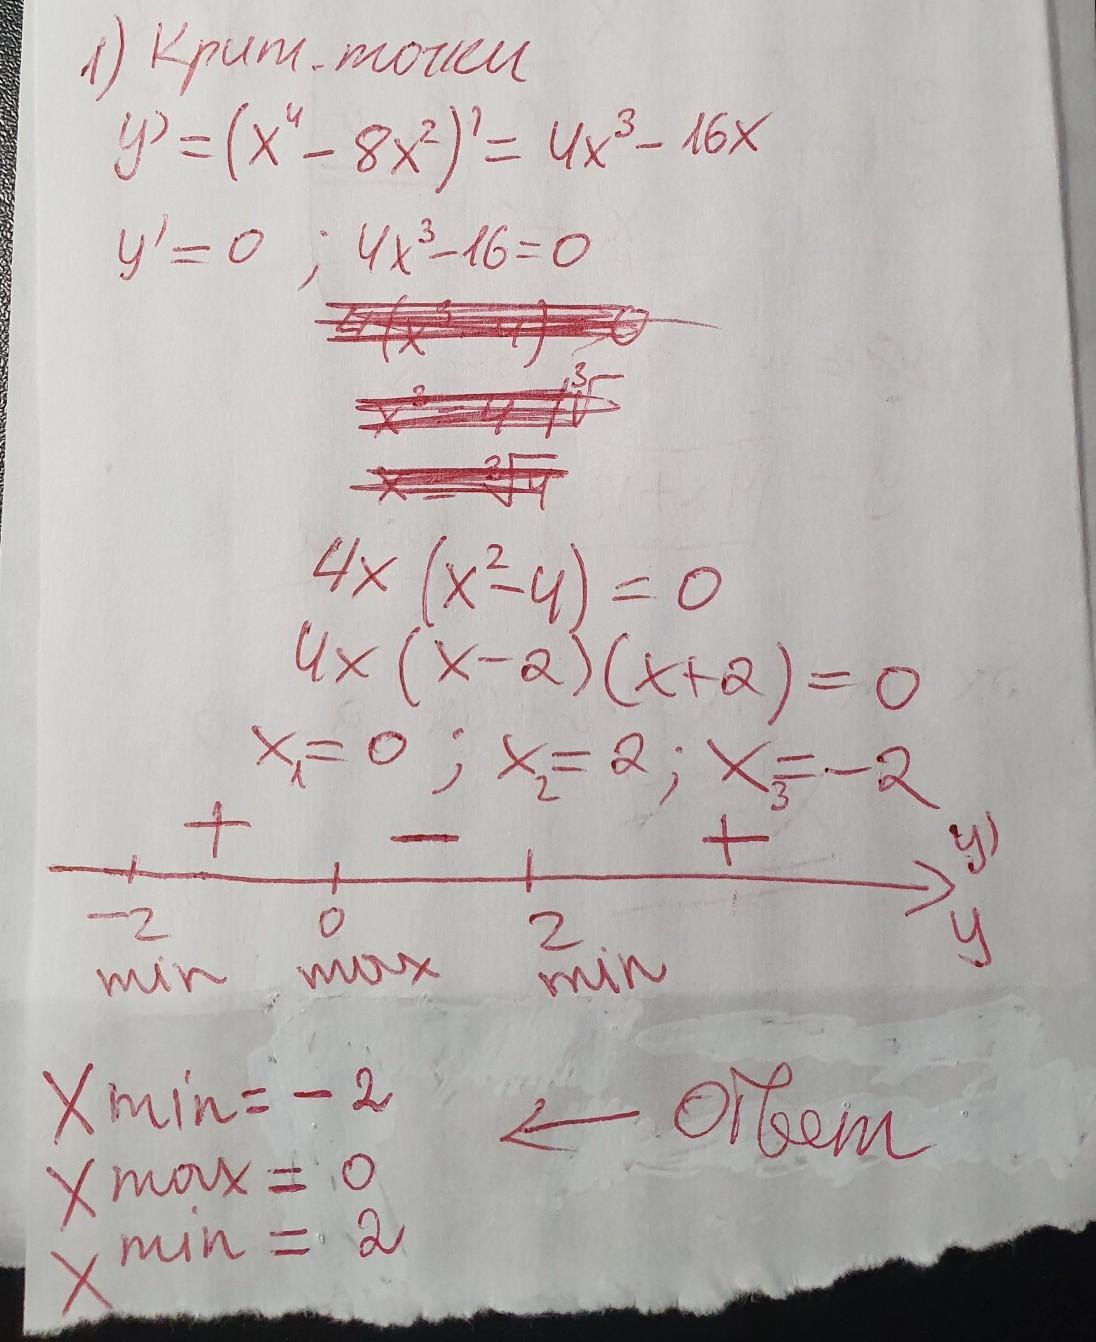 1) Крит. точки
y' = (x⁴ - 8x²)' = 4x³ - 16x
y' = 0 ; 4x³ - 16 = 0
4x (x² - 4) = 0
4x (x - 2)(x + 2) = 0
x₁ = 0 ; x₂ = 2 ; x₃ = -2
+ - + y'
-2 0 2 y
min max min
x min = -2 ← Ответ
x max = 0
x min = 2